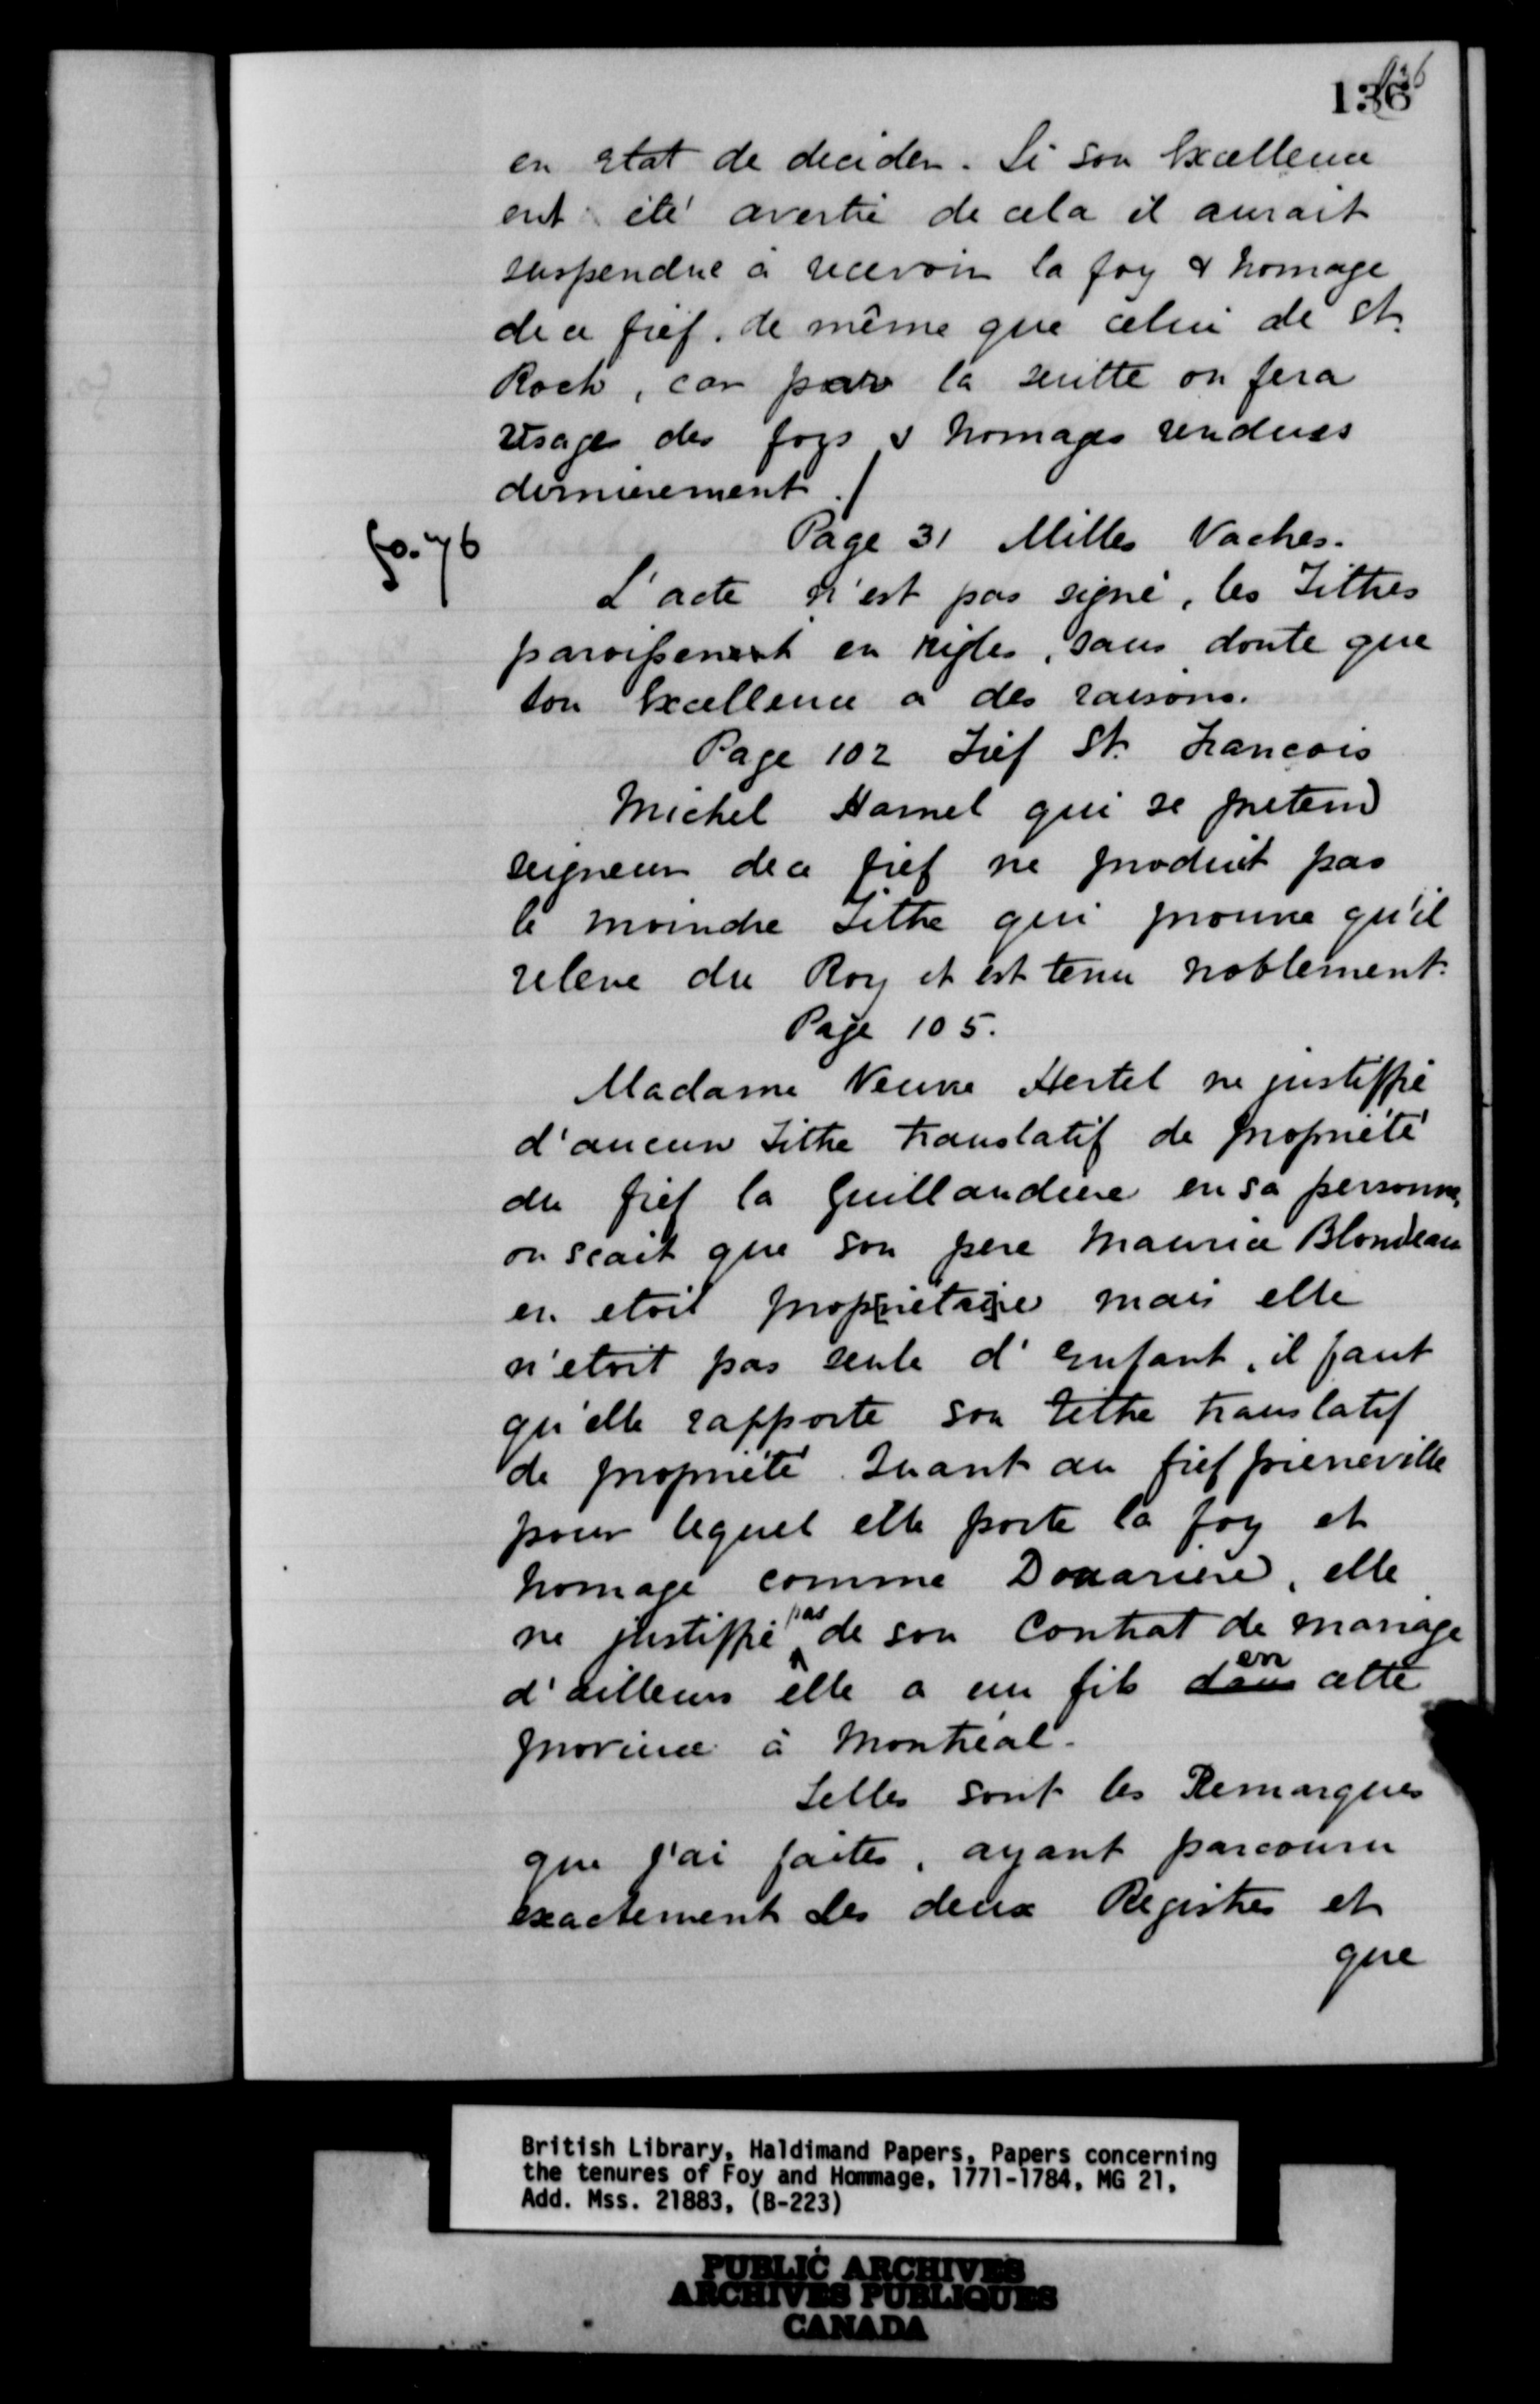 136
en etat de decider. Si son Excellence
eut été avertie de cela il aurait
suspendue à recevoir la foy & homage
de ce fief. de même que celui de St.
Roch, car par la suitte on fera
usage des foys & homages rendues
dernierement ./
fo. 76
Page 31 Milles Vaches.
L'acte n'est pas signé, les Tittres
paroissent en regles, sans doute que
son Excellence a des raisons.
Page 102 Fief St. Francois
Michel Hamel qui se pretend
seigneur de ce fief ne produit pas
le moindre Tittre qui prouve qu'il
releve du Roy et est tenu noblement.
Page 105.
Madame Veuve Hertel ne justiffie
d'aucun Tittre translatif de propriété
du fief la Guillaudiere en sa personne,
on scait que son pere Maurice Blondeau
en etoit proprietaire mais elle
n'etoit pas seule d'enfant, il faut
qu'elle rapporte son tittre translatif
de propriété. Quant au fief pierreville
pour lequel elle porte la foy et
homage comme Douariere, elle
ne justiffie pas de son Contrat de mariage
d'ailleurs elle a un fils dans en cette
province à Montréal.
Telles sont les Remarques
que j'ai faites, ayant parcouru
exactement les deux Registres et
que
British Library, Haldimand Papers, Papers concerning
the tenures of Foy and Hommage, 1771-1784, MG 21,
Add. Mss. 21883, (B-223)
PUBLIC ARCHIVES
ARCHIVES PUBLIQUES
CANADA